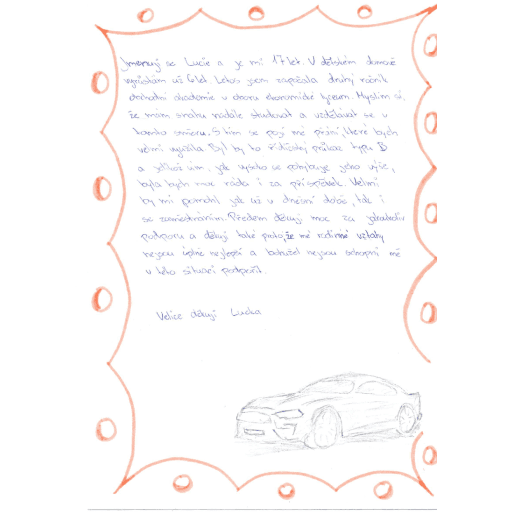 Jmenuji se Lucie a je mi 17 let. V dětském domově
vyrůstám už 6 let. Letos jsem započala druhý ročník
obchodní akademie v oboru ekonomické lyceum. Myslím si,
že mám snahu nadále studovat a vzdělávat se v
tomto směru. S tím se pojí mé přání, které bych
velmi využila. Byl by to řidičský průkaz typu B
a jelikož vím, jak vysoko se pohybuje jeho výše,
byla bych moc ráda i za příspěvek. Velmi
by mi pomohl jak už v dnešní době, tak i
se zaměstnáním. Předem děkuji moc za jakoukoliv
podporu a děkuji také protože mé rodinné vztahy
nejsou úplně nejlepší a bohužel nejsou schopni mě
v této situaci podpořit.
Velice děkuji Lucka